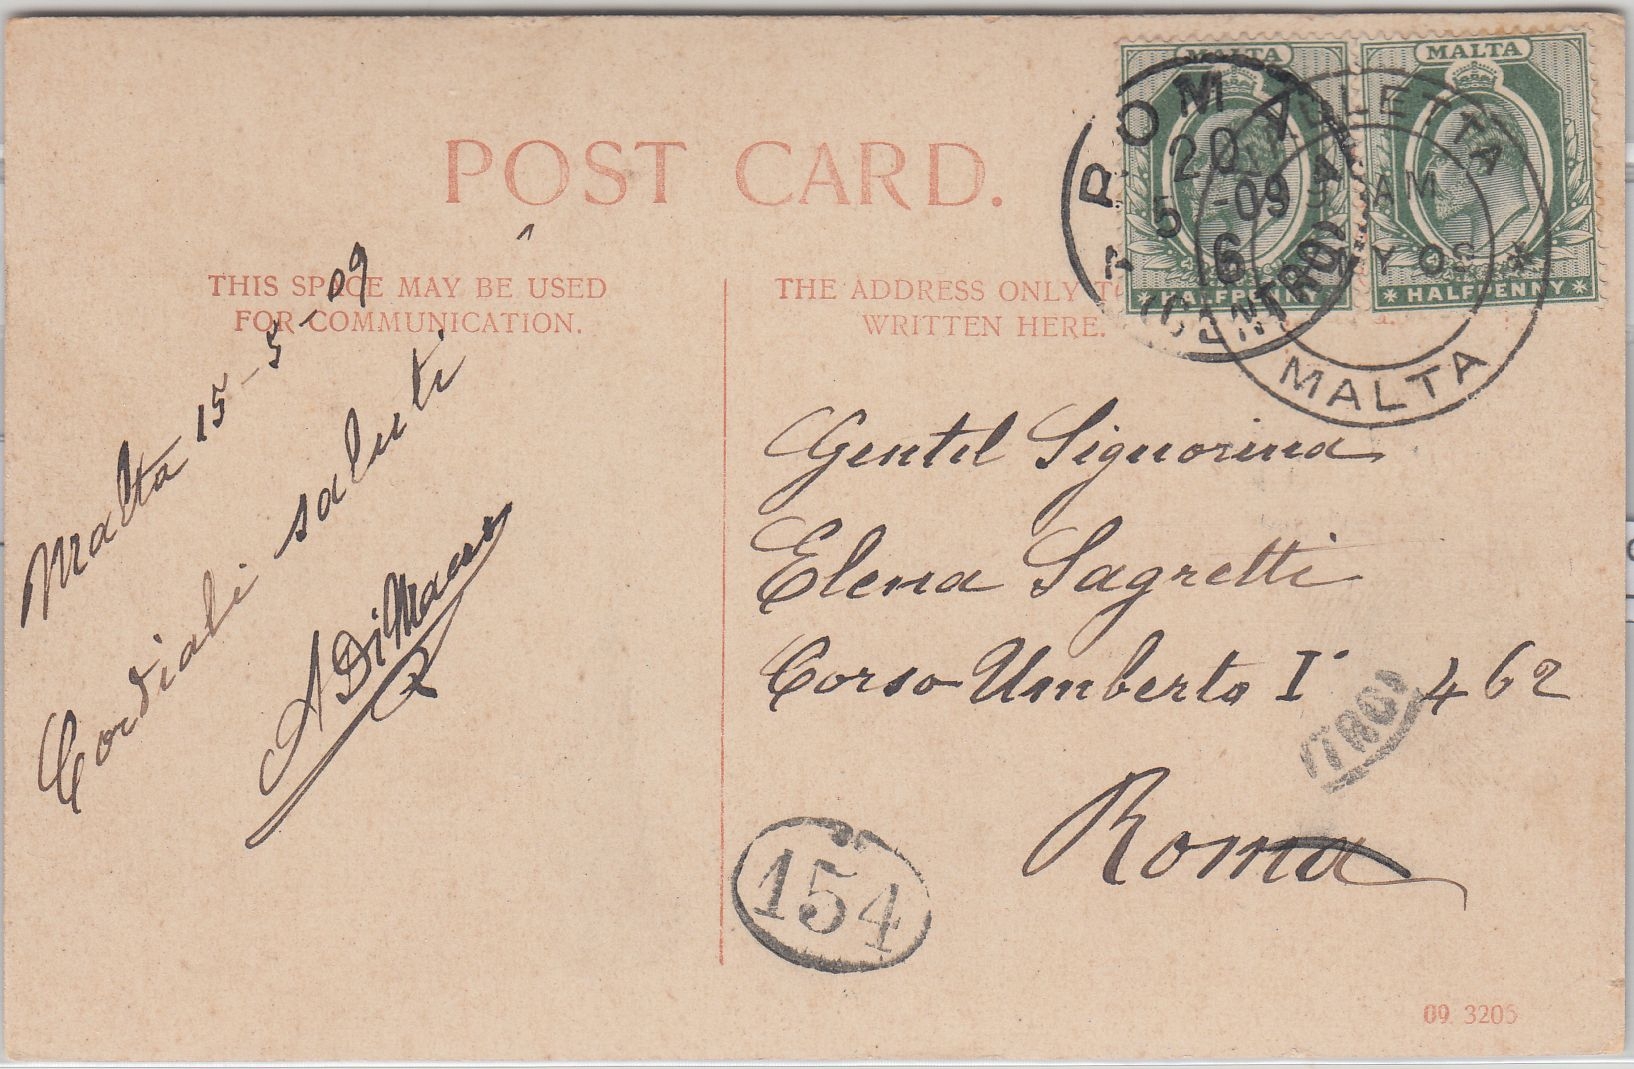 POST CARD.
THIS SPACE MAY BE USED
FOR COMMUNICATION.
Malta 15-5-09
Cordiali saluti
A Di Mauro
THE ADDRESS ONLY TO
WRITTEN HERE.
MALTA
HALFPENNY
MALTA
HALFPENNY
ROMA
20
5 -09
6
CENTRO
VALLETTA
AM
MALTA
Gentil Signorina
Elena Sagretti
Corso Umberto I° 462
Roma
TRO
154
09 3205